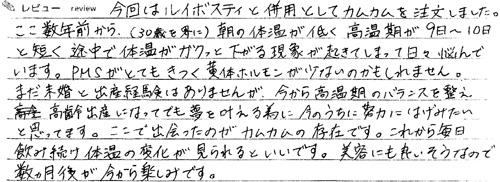 レビュー review 今回はルイボスティと併用としてカムカムを注文しました。
ここ数年前から、(30歳を界に) 朝の体温が低く 高温期が9日〜10日
と短く 途中で体温がガクッと下がる現象が起きてしまって日々悩んで
います。PMSがとてもきつく黄体ホルモンが少ないのかもしれません。
まだ未婚と出産経験はありませんが、今から高温期のバランスを整え
高齢出産になってでも夢を叶える為に今のうちに努力にはげみたい
と思ってます。ここで出会ったのがカムカムの存在です。これから毎日
飲み続け体温の変化が見られるといいです。美容にも良いそうなので
数ヵ月後が今から楽しみです。